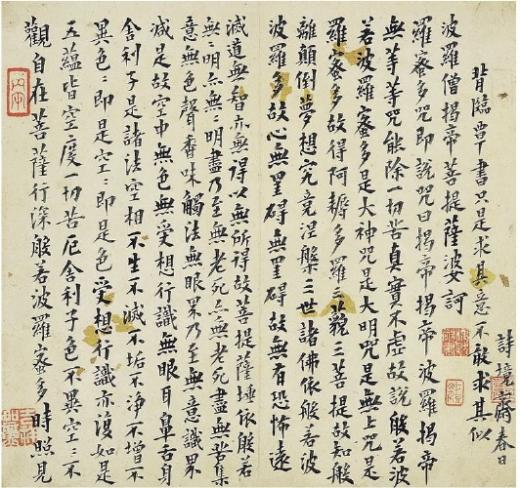 觀自在菩薩行深般若波羅蜜多時照見
五蘊皆空度一切苦厄舍利子色不異空〻不
異色〻即是空〻即是色受想行識亦復如是
舍利子是諸法空相不生不滅不垢不淨不增不
減是故空中無色無受想行識無眼耳鼻舌身
意無色聲香味觸法無眼界乃至無意識界
無〻明亦無〻明盡乃至無老死亦無老死盡無苦集
滅道無智亦無得以無所得故菩提薩埵依般若
波羅多故心無罣碍無罣碍故無有恐怖遠
離顛倒夢想究竟涅槃三世諸佛依般若波
羅蜜多故得阿耨多羅三藐三菩提故知般
若波羅蜜多是大神咒是大明咒是無上咒是
無等等咒能除一切苦真實不虛故說般若波
羅蜜多咒即說咒曰揭帝揭帝波羅揭帝
波羅僧揭帝菩提薩婆訶
背臨覃書只是求其意不敢求其似
詩境齋春日